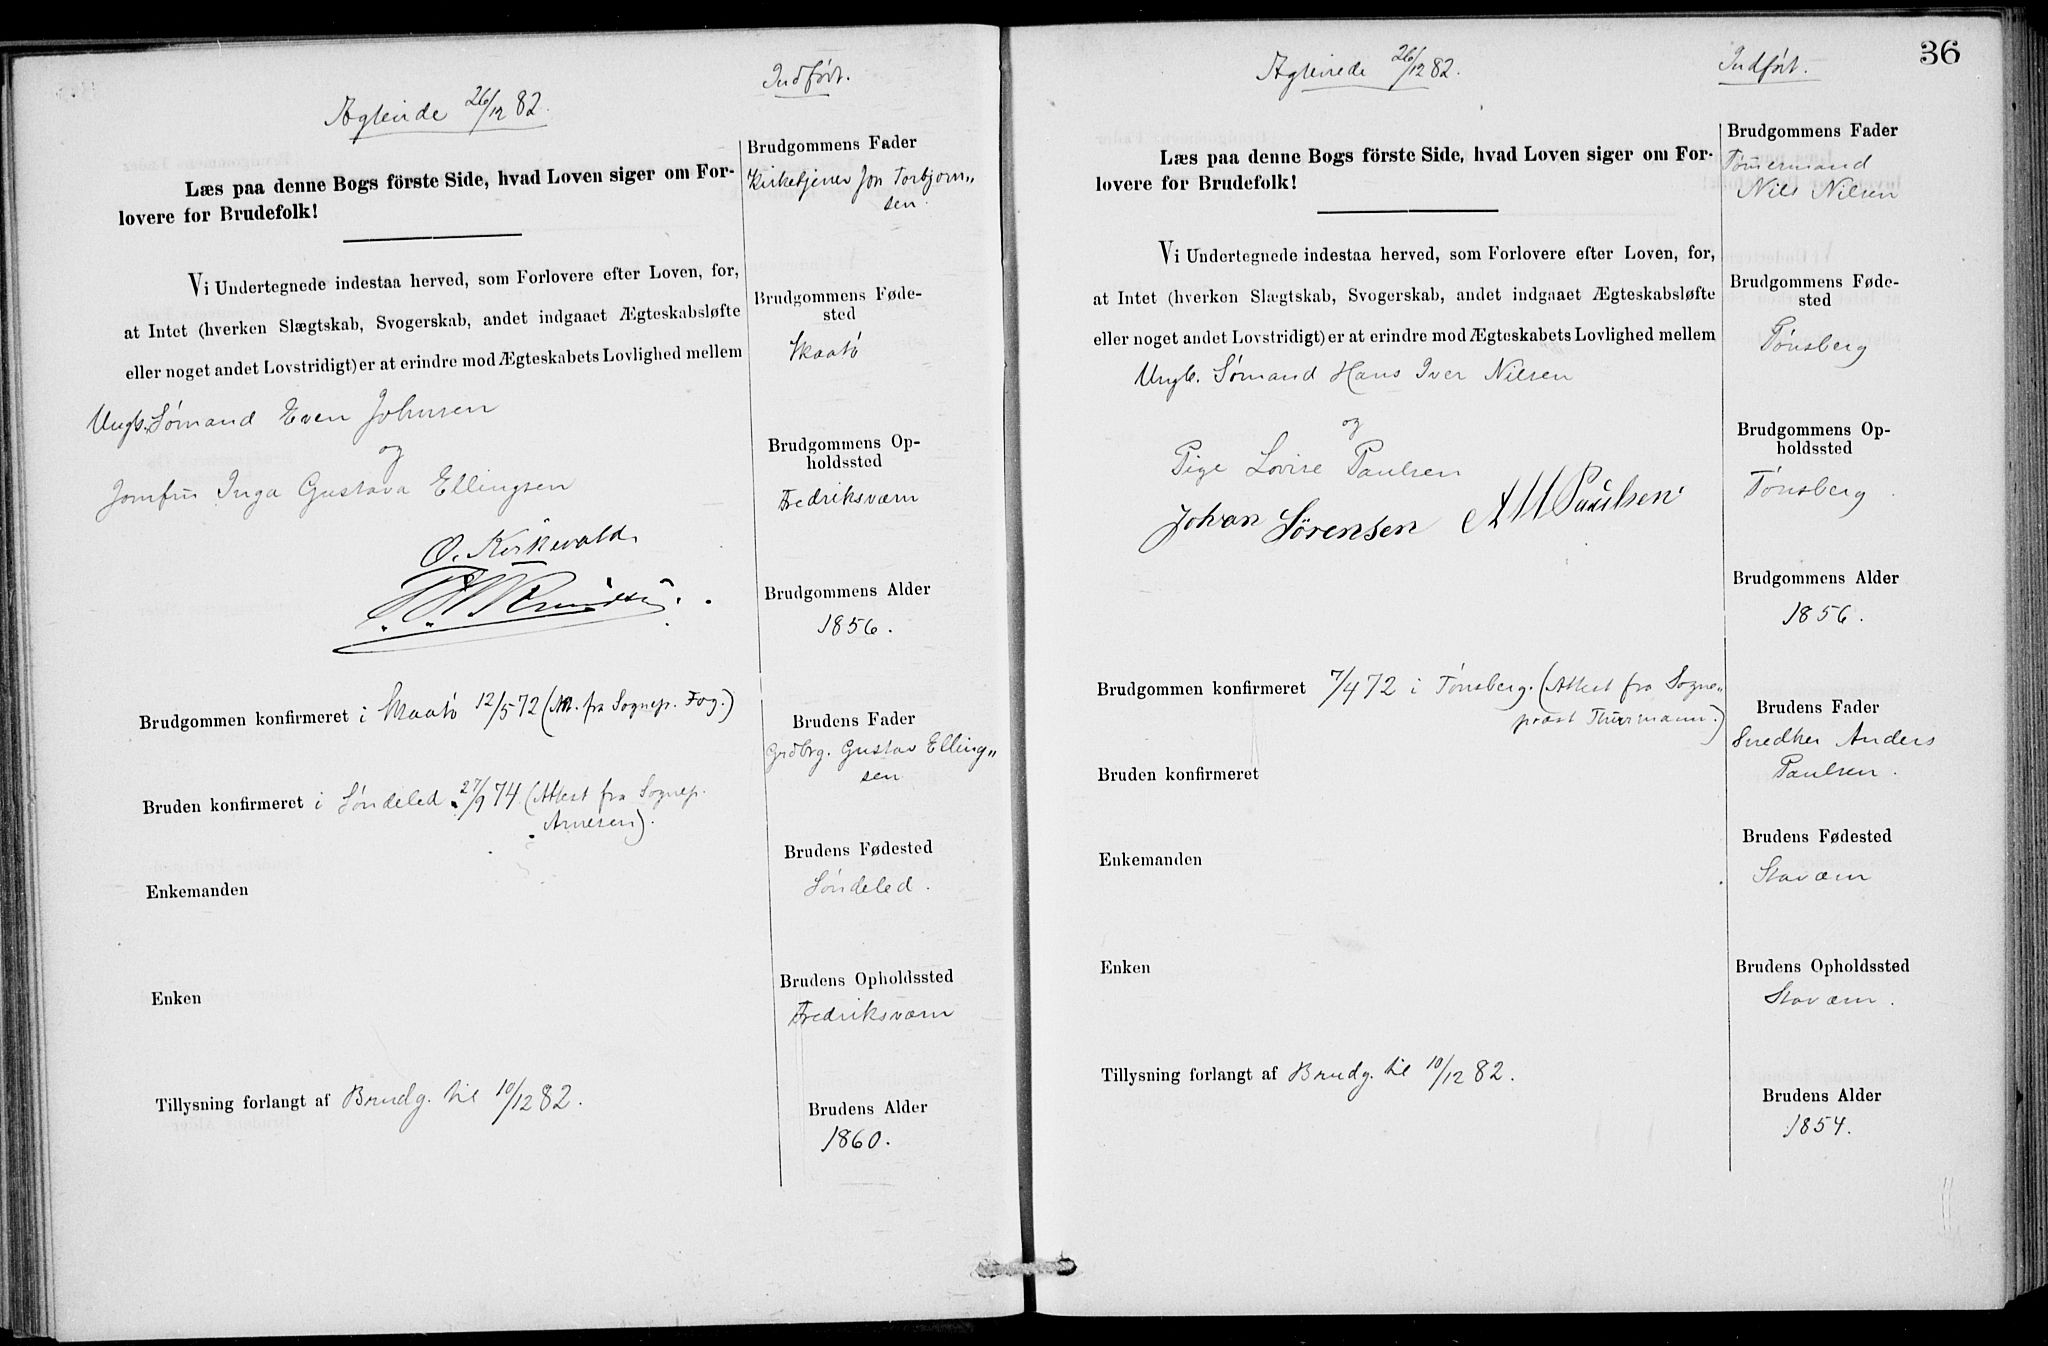 Ægteviede 26/12 82.
Indført.
Læs paa denne Bogs förste Side, hvad Loven siger om For-
lovere for Brudefolk!
Vi Undertegnede indestaa herved, som Forlovere efter Loven, for,
at Intet (hverken Slægtskab, Svogerskab, andet indgaaet Ægteskabsløfte
eller noget andet Lovstridigt) er at erindre mod Ægteskabets Lovlighed mellem
Ungk. Sømand Even Johnsen
og
Jomfru Inga Gustava Ellingsen
O. Kirkevold
Brudgommen konfirmeret i Skaatö 12/5 72 (Att. fra Sognep. Fog.)
Bruden konfirmeret i Søndeled 27/9 74 (Attest fra Sognep.
Arnesen).
Enkemanden
Enken
Tillysning forlangt af Brudg. til 10/12 82.
Brudgommens Fader
Kirketjener Jon Torbjørn„
sen.
Brudgommens Føde-
sted
Skaatö
Brudgommens Op-
holdssted
Fredriksværn
Brudgommens Alder
1856.
Brudens Fader
Grdbrg. Gustav Elling„
sen
Brudens Fødested
Søndeled.
Brudens Opholdssted
Fredriksværn
Brudens Alder
1860.
36
Ægteviede 26/12 82.
Indført.
Læs paa denne Bogs förste Side, hvad Loven siger om For-
lovere for Brudefolk!
Vi Undertegnede indestaa herved, som Forlovere efter Loven, for,
at Intet (hverken Slægtskab, Svogerskab, andet indgaaet Ægteskabsløfte
eller noget andet Lovstridigt) er at erindre mod Ægteskabets Lovlighed mellem
Ungk. Sømand Hans Iver Nilsen
og
Pige Lovise Paulsen
Johan Sørensen A M Paulsen
Brudgommen konfirmeret 7/4 72 i Tønsberg. (Attest fra Sogne„
præst Thurmann.)
Bruden konfirmeret
Enkemanden
Enken
Tillysning forlangt af Brudg. til 10/12 82.
Brudgommens Fader
Tømermand
Nils Nilsen
Brudgommens Føde-
sted
Tønsberg
Brudgommens Op-
holdssted
Tønsberg.
Brudgommens Alder
1856.
Brudens Fader
Snedker Anders
Paulsen.
Brudens Fødested
Staværn
Brudens Opholdssted
Staværn.
Brudens Alder
1854.